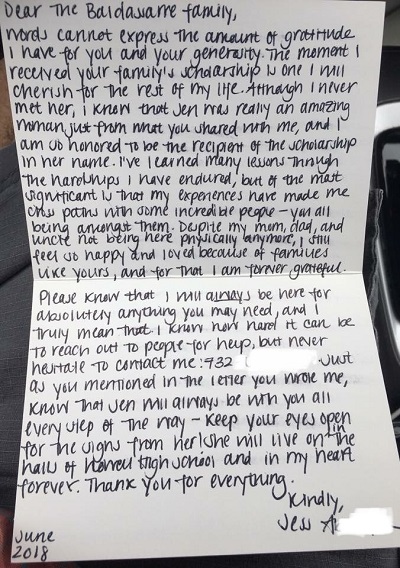 Dear The Baldassarre family,
words cannot express the amount of gratitude
I have for you and your generosity. The moment I
received your family's scholarship is one I will
cherish for the rest of my life. Although I never
met her, I know that Jen was really an amazing
woman just from what you shared with me, and I
am so honored to be the recipient of the scholarship
in her name. I've learned many lessons through
the hardships I have endured, but of the most
significant is that my experiences have made me
cross paths with some incredible people - you all
being amongst them. Despite my mom, dad, and
uncle not being here physically anymore, I still
feel so happy and loved because of families
like yours, and for that I am forever grateful.
Please know that I will always be here for
absolutely anything you may need, and I
truly mean that. I know how hard it can be
to reach out to people for help, but never
hesitate to contact me: 732 Just
as you mentioned in the letter you wrote me,
know that Jen will always be with you all
every step of the way - keep your eyes open
for the signs from her! She will live on in the
halls of Howell High School and in my heart
forever. Thank you for everything.
Kindly,
Jess A
June
2018